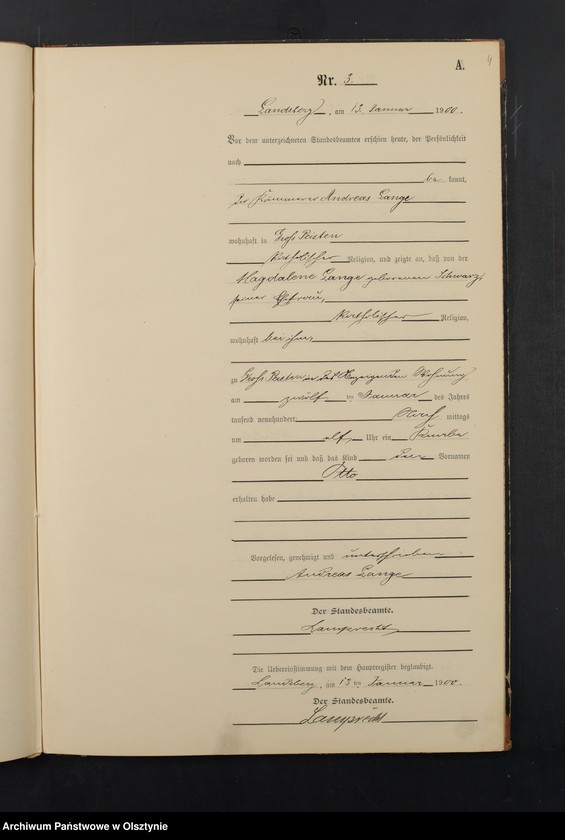 4
A.
Nr. 3.
Landsberg, am 13. Januar 1900.
Vor dem unterzeichneten Standesbeamten erschien heute, der Persönlichkeit
nach
be kannt,
der Kämmerer Andreas Lange
wohnhaft in Groß Peisten
katholischer Religion, und zeigte an, daß von der
Magdalene Lange geborenen Schwarz,
seiner Ehefrau,
katholischer Religion,
wohnhaft bei ihm,
zu Groß Peisten in des Anzeigenden Wohnung
am zwölften Januar des Jahres
tausend neunhundert Nachmittags
um elf Uhr ein Knabe
geboren worden sei und daß das Kind den Vornamen
Otto
erhalten habe
Vorgelesen, genehmigt und unterschrieben
Andreas Lange
Der Standesbeamte.
Lamprecht
Die Uebereinstimmung mit dem Hauptregister beglaubigt.
Landsberg, am 13ten Januar 1900.
Der Standesbeamte.
Lamprecht
Archiwum Państwowe w Olsztynie